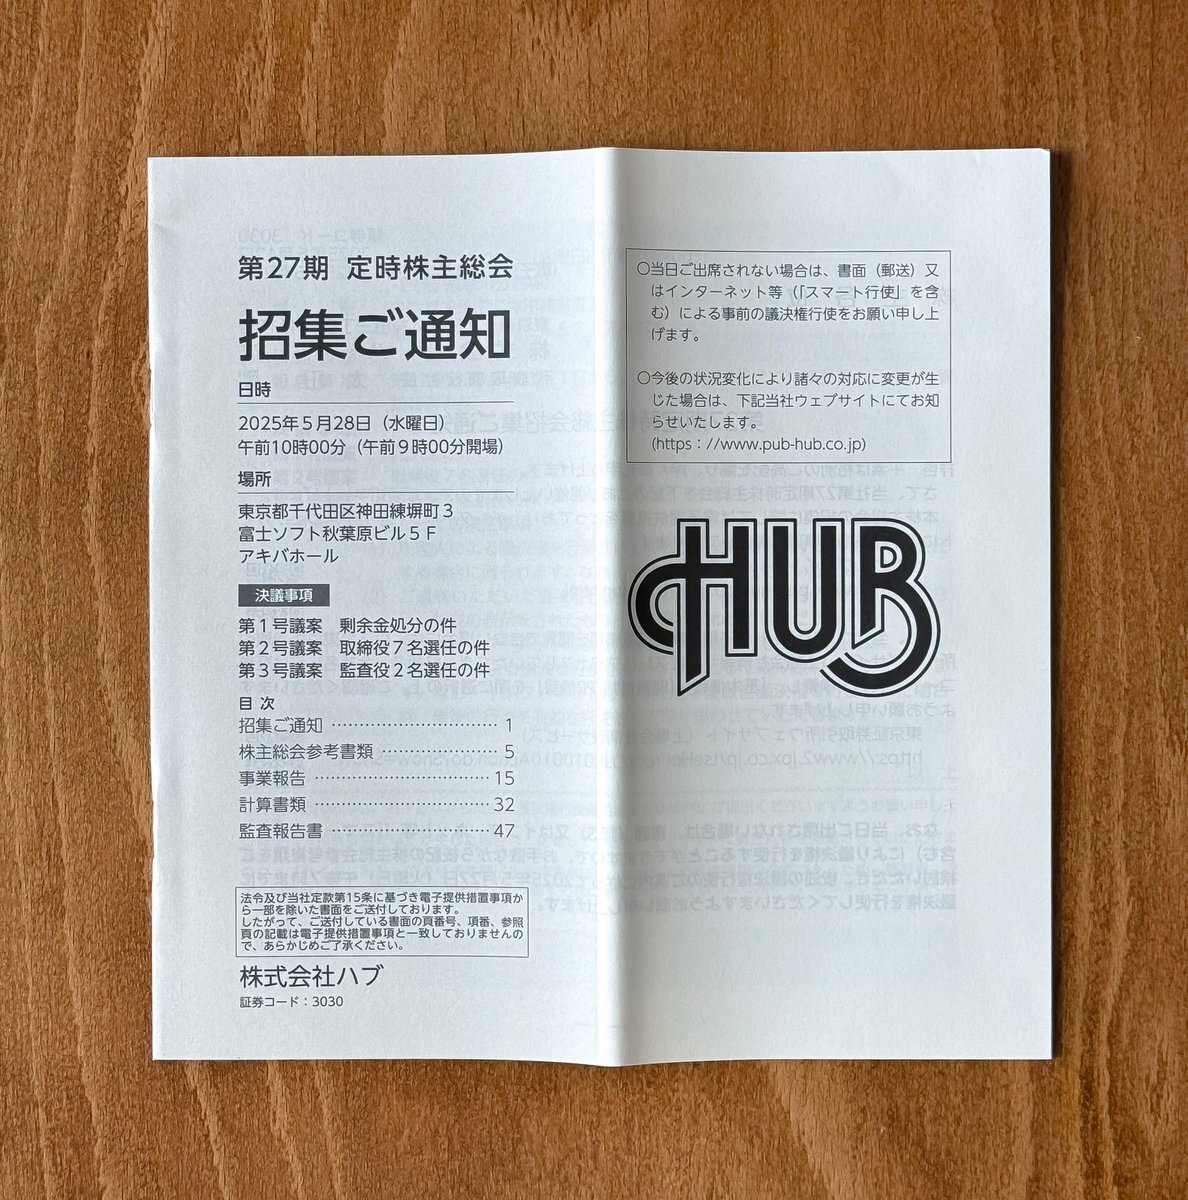 第27期 定時株主総会
招集ご通知
日時
2025年5月28日（水曜日）
午前10時00分（午前9時00分開場）
場所
東京都千代田区神田練塀町3
富士ソフト秋葉原ビル5F
アキバホール
決議事項
第1号議案 剰余金処分の件
第2号議案 取締役7名選任の件
第3号議案 監査役2名選任の件
目次
招集ご通知 ⋯⋯⋯⋯⋯⋯⋯⋯ 1
株主総会参考書類 ⋯⋯⋯⋯⋯⋯ 5
事業報告 ⋯⋯⋯⋯⋯⋯⋯⋯⋯ 15
計算書類 ⋯⋯⋯⋯⋯⋯⋯⋯⋯ 32
監査報告書 ⋯⋯⋯⋯⋯⋯⋯⋯ 47
法令及び当社定款第15条に基づき電子提供措置事項か
ら一部を除いた書面をご送付しております。
したがって、ご送付している書面の頁番号、項番、参照
頁の記載は電子提供措置事項と一致しておりませんの
で、あらかじめご了承ください。
株式会社ハブ
証券コード：3030
○当日ご出席されない場合は、書面（郵送）又
はインターネット等（「スマート行使」を含
む）による事前の議決権行使をお願い申し上
げます。
○今後の状況変化により諸々の対応に変更が生
じた場合は、下記当社ウェブサイトにてお知
らせいたします。
(https：//www.pub-hub.co.jp)
HUB